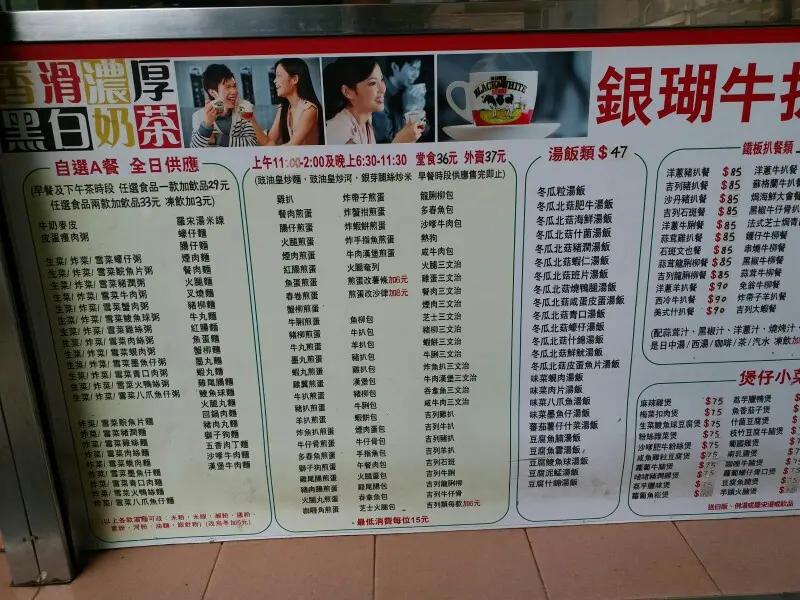 香滑濃厚
黑白奶茶
BLACK&WHITE
銀瑚牛扒
自選A餐 全日供應
(早餐及下午茶時段 任選食品一款加飲品29元
任選食品兩款加飲品33元 凍飲加3元)
牛奶麥皮
皮蛋瘦肉粥
生菜/ 炸菜/ 雪菜蠔仔粥
生菜/ 炸菜/ 雪菜鯇魚片粥
生菜/ 炸菜/ 雪菜豬潤粥
生菜/ 炸菜/ 雪菜牛肉粥
生菜/ 炸菜/ 雪菜蟹肉粥
生菜/ 炸菜/ 雪菜鯪魚球粥
生菜/ 炸菜/ 雪菜雞絲粥
生菜/ 炸菜/ 雪菜肉絲粥
生菜/ 炸菜/ 雪菜蜆肉粥
生菜/ 炸菜/ 雪菜墨魚仔粥
生菜/ 炸菜/ 雪菜青口肉粥
生菜/ 炸菜/ 雪菜火鴨絲粥
生菜/ 炸菜/ 雪菜八爪魚仔粥
炸菜/ 雪菜鯇魚片麵
炸菜/ 雪菜豬潤麵
炸菜/ 雪菜雞絲麵
炸菜/ 雪菜肉絲麵
炸菜/ 雪菜蜆肉麵
炸菜/ 雪菜墨魚仔麵
炸菜/ 雪菜青口肉麵
炸菜/ 雪菜火鴨絲麵
炸菜/ 雪菜八爪魚仔麵
羅宋湯米線
蠔仔麵
腸仔麵
煙肉麵
餐肉麵
火腿麵
叉燒麵
豬柳麵
牛丸麵
紅腸麵
魚蛋麵
蟹柳麵
墨丸麵
蝦丸麵
雞尾腸麵
鯪魚球麵
火腿丸麵
回鍋肉麵
豬肉丸麵
獅子狗麵
五香肉丁麵
沙嗲牛肉麵
漢堡牛肉麵
上午11:00-2:00及晚上6:30-11:30 堂食36元 外賣37元
(豉油皇炒麵、豉油皇炒河、銀芽腿絲炒米 早餐時段供應售完即止)
雞扒
餐肉煎蛋
腸仔煎蛋
火腿煎蛋
煙肉煎蛋
紅腸煎蛋
魚蛋煎蛋
春卷煎蛋
蟹柳煎蛋
牛脷煎蛋
豬柳煎蛋
牛丸煎蛋
墨丸煎蛋
蝦丸煎蛋
雞翼煎蛋
牛扒煎蛋
豬扒煎蛋
羊扒煎蛋
炸魚扒煎蛋
牛仔骨煎蛋
多春魚煎蛋
獅子狗煎蛋
雞尾腸煎蛋
豬肉腸煎蛋
火腿丸煎蛋
咖喱角煎蛋
炸帶子煎蛋
炸蟹拑煎蛋
炸蝦餅煎蛋
炸手指魚煎蛋
牛肉漢堡煎蛋
火腿奄列
煎蛋改薯條加6元
煎蛋改沙律加8元
魚柳包
牛扒包
羊扒包
豬扒包
雞扒包
漢堡包
豬柳包
牛脷包
蝦餅包
煙肉蛋包
牛仔骨包
手指魚包
午餐肉包
火腿蛋包
雞尾腸包
吞拿魚包
芝士火腿包
龍脷柳包
多春魚包
沙嗲牛肉包
熱狗
咸牛肉包
火腿三文治
雞蛋三文治
餐肉三文治
煙肉三文治
芝士三文治
豬柳三文治
蝦餅三文治
牛脷三文治
炸魚三文治
牛肉漢堡三文治
吞拿魚三文治
咸牛肉三文治
吉列雞扒
吉列牛扒
吉列豬扒
吉列羊扒
吉列石班
吉列牛脷
吉列龍脷柳
吉列牛仔骨
吉列類每款加6元
·最低消費每位15元
湯飯類$47
冬瓜粒湯飯
冬瓜北菇肥牛湯飯
冬瓜北菇海鮮湯飯
冬瓜北菇什菌湯飯
冬瓜北菇豬潤湯飯
冬瓜北菇蝦仁湯飯
冬瓜北菇班片湯飯
冬瓜北菇燒鴨腿湯飯
冬瓜北菇咸蛋皮蛋湯飯
冬瓜北菇青口湯飯
冬瓜北菇蠔仔湯飯
冬瓜北菇什錦湯飯
冬瓜北菇鮮魷湯飯
冬瓜北菇皮蛋魚片湯飯
味菜蜆肉湯飯
味菜肉片湯飯
味菜八爪魚湯飯
味菜墨魚仔湯飯
蕃茄薯仔什菜湯飯
豆腐魚腩湯飯
豆腐魚雲湯飯
豆腐鯪魚球湯飯
豆腐泥鯭湯飯
豆腐什錦湯飯
鐵板扒餐類
洋蔥豬扒餐 $85
吉列豬扒餐 $85
沙丹豬扒餐 $85
吉列石班餐 $85
洋蔥牛脷餐 $85
蒜茸雞扒餐 $85
石班文也餐 $85
蒜茸龍脷柳餐 $85
吉列龍脷柳餐 $85
洋蔥羊扒餐 $90
西冷牛扒餐 $90
美式什扒餐 $90
洋蔥牛柳餐
蘇格蘭牛扒餐
焗海鮮大會餐
黑椒牛仔骨扒
法式芝士焗青口
鐘仔牛柳餐
串燒牛柳餐
黑椒牛柳餐
蒜茸牛柳餐
免翁牛柳餐
炸帶子羊餐
吉列大蝦餐
(配蒜茸汁、黑椒汁、洋蔥汁、燒烤汁
是日中湯/西湯/咖啡/茶/汽水 凍飲加
煲仔小菜
麻辣雞煲 $75
梅菜扣肉煲 $75
生菜鯪魚球豆腐煲 $75
粉絲雜菜煲 $75
沙嗲肥牛粉絲煲 $75
咸魚雞粒豆腐煲 $75
蘿蔔牛腩煲 $75
啫啫豬潤雞煲 $75
荔芋臘味煲 $75
蘿蔔魚鬆煲 $75
荔芋臘鴨煲
魚香茄子煲
什菌豆腐煲
枝竹豆腐牛腩煲
葡國雞煲
南乳雞煲
咖喱牛腩煲
薑蔥蠔仔豬口煲
豆腐魚腩煲
芋頭火腩煲
送白飯、例湯或羅宋湯或飲品